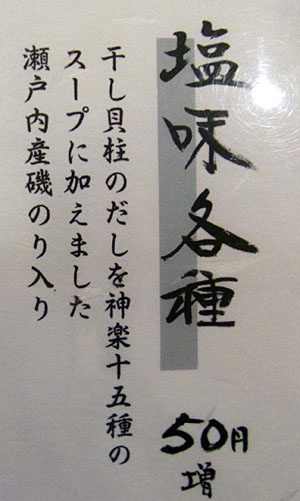 塩味各種
50円
増
干し貝柱のだしを神楽十五種の
スープに加えました
瀬戸内産磯のり入り